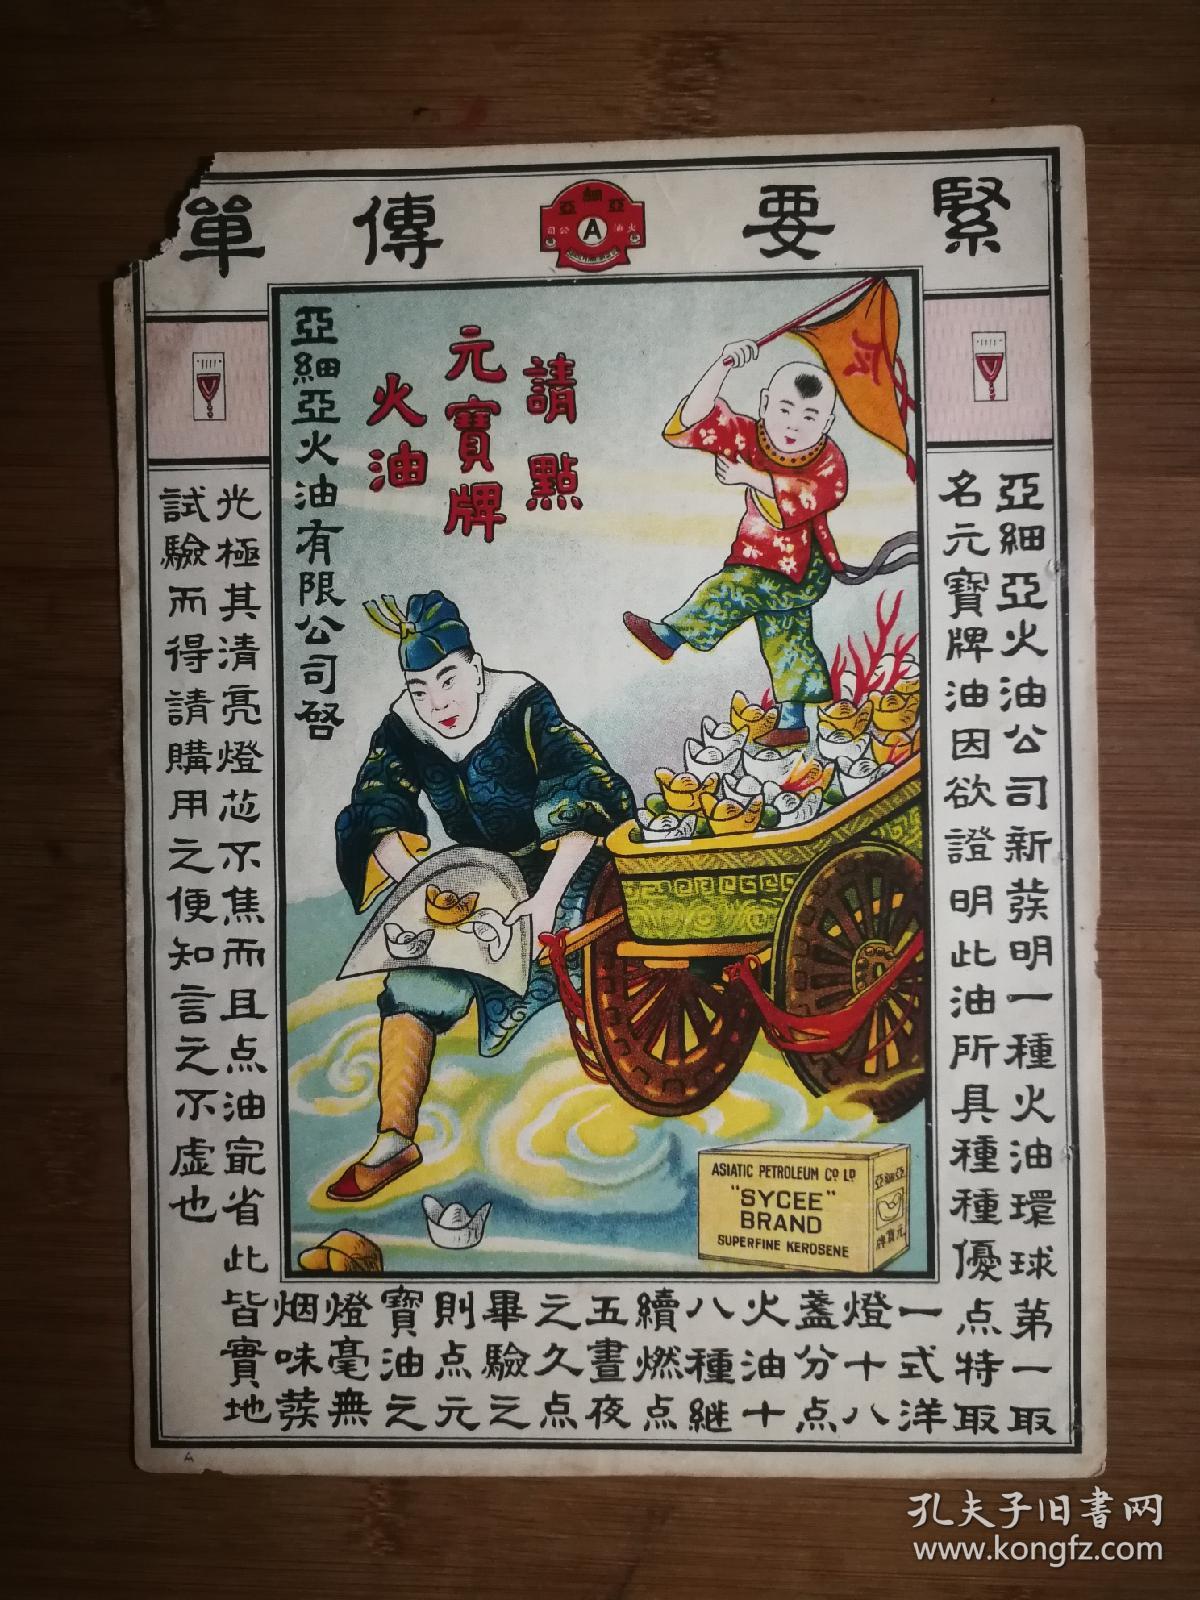 緊要傳單
亞細亞
火油公司
A
亞細亞火油公司新發明一種火油環球第一取
名元寶牌油因欲證明此油所具種種優点特取
一式洋
燈十八
盞分点
火油十
八種継
續燃点
五晝夜
之久点
畢驗之
則点元
寶油之
燈毫無
烟味發
光極其清亮燈芯不焦而且点油㝡省此皆實地
試驗而得請購用之便知言之不虛也
請點
元寶牌
火油
亞細亞火油有限公司啓
ASIATIC PETROLEUM CO LD
"SYCEE"
BRAND
SUPERFINE KEROSENE
亞細亞
元寶牌
A
孔夫子旧书网
www.kongfz.com